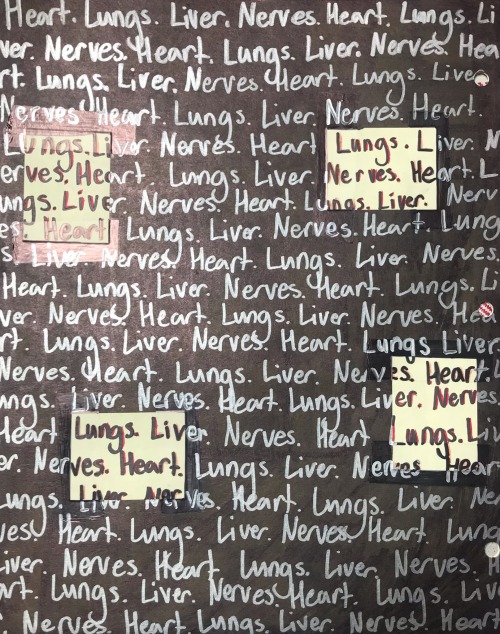 Heart. Lungs. Liver. Nerves. Heart. Lungs. Li
ver. Nerves. Heart. Lungs. Liver. Nerves. Hea
rt. Lungs. Liver. Nerves. Heart. Lungs. Live
Nerves Heart. Lungs. Liver. Nerves. Heart.
Lungs. Liver. Nerves. Heart Lungs. Liver. N
erves. Heart. Lungs. Liver. Nerves. Heart. L
ungs. Liver. Nerves. Heart. Lungs. Liver. Nerv
es. Heart Lungs. Liver. Nerves. Heart. Lung
s. Liver Nerves. Heart. Lungs. Liver. Nerves.
Heart. Lungs. Liver. Nerves. Heart. Lungs. L
ver Nerves. Heart. Lungs. Liver. Nerves. He
rt. Lungs. Liver. Nerves. Heart. Lungs Liver.
Nerves. Heart. Lungs. Liver. Nerves. Heart. L
ungs. Liver. Nerves. Heart Lungs. Liver. Nerves.
Heart Lungs. Liver Nerves. Heart Lungs. Li
er. Nerves. Heart. Lungs. Liver. Nerves Heart
Lungs. Liver. Nerves. Heart Lungs. Liver. Ne
ves Heart. Lungs. Liver. Nerves Heart. Lung
Liver. Nerves. Heart Lungs. Liver. Nerves. H
rt. Lungs. Liver. Nerves. Heart. Lungs. Liver.
Nerves. Heart. Lungs. Liver. Nerves. Heart